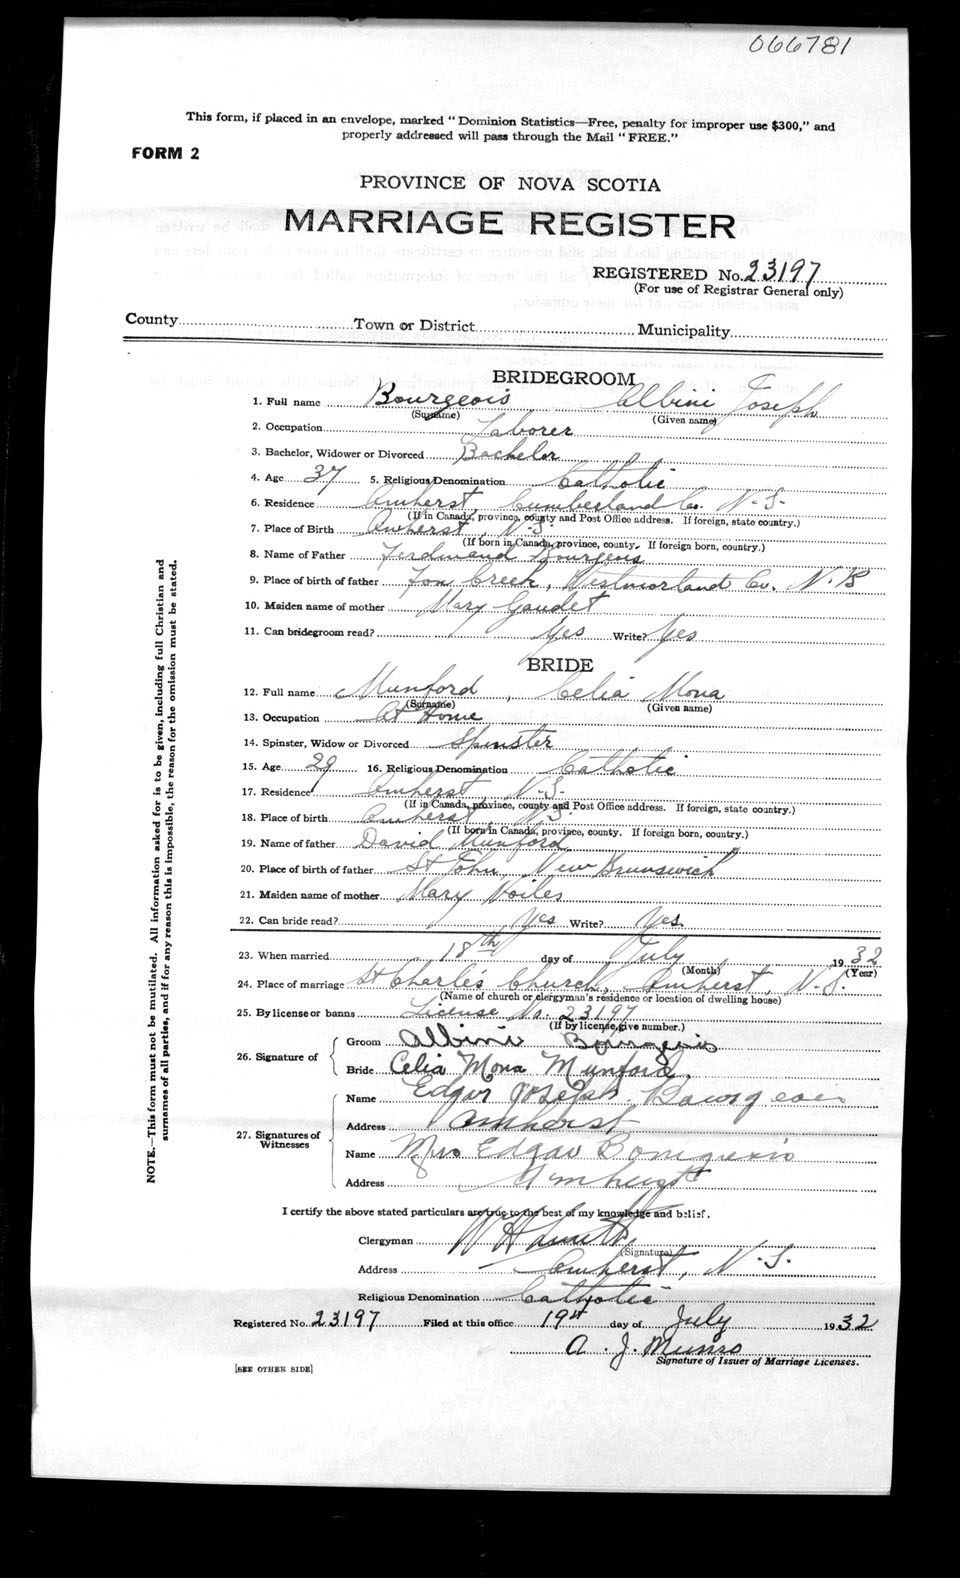 066781
This form, if placed in an envelope, marked "Dominion Statistics—Free, penalty for improper use $300," and
properly addressed will pass through the Mail "FREE."
FORM 2
PROVINCE OF NOVA SCOTIA
MARRIAGE REGISTER
REGISTERED No. 23197
(For use of Registrar General only)
County Town or District Municipality
BRIDEGROOM
1. Full name Bourgeois Albini Joseph
(Surname) (Given name)
2. Occupation Laborer
3. Bachelor, Widower or Divorced Bachelor
4. Age 37 5. Religious Denomination Catholic
6. Residence Amherst, Cumberland Co. N.S.
(If in Canada, province, county and Post Office address. If foreign, state country.)
7. Place of Birth Amherst, N.S.
(If born in Canada, province, county. If foreign born, country.)
8. Name of Father Ferdinand Bourgeois
9. Place of birth of father Fox Creek, Westmorland Co. N.B
10. Maiden name of mother Mary Gaudet
11. Can bridegroom read? Yes Write? Yes
BRIDE
12. Full name Munford, Celia Mona
(Surname) (Given name)
13. Occupation At Home
14. Spinster, Widow or Divorced Spinster
15. Age 29 16. Religious Denomination Catholic
17. Residence Amherst, N.S.
(If in Canada, province, county and Post Office address. If foreign, state country.)
18. Place of birth Amherst N.S.
(If born in Canada, province, county. If foreign born, country.)
19. Name of father David Munford
20. Place of birth of father St John, New Brunswick
21. Maiden name of mother Mary Voiles
22. Can bride read? Yes Write? Yes.
23. When married 18th day of July 1932
(Month) (Year)
24. Place of marriage St Charle's Church, Amherst, N.S.
(Name of church or clergyman's residence or location of dwelling house)
25. By license or banns License No. 23197
(If by license, give number.)
26. Signature of Groom Albini Bourgeois
Bride Celia Mona Munford.
27. Signatures of Witnesses Name Edgar Joseph Bourgeois
Address Amherst
Name Mrs Edgar Bourgeois
Address Amherst
I certify the above stated particulars are true to the best of my knowledge and belief.
Clergyman
(Signature)
Address Amherst, N.S.
Religious Denomination Catholic
Registered No. 23197 Filed at this office 19th day of July 1932
A. J. Munro
Signature of Issuer of Marriage Licenses.
[SEE OTHER SIDE]
NOTE.—This form must not be mutilated. All information asked for is to be given, including full Christian and
surnames of all parties, and if for any reason this is impossible, the reason for the omission must be stated.